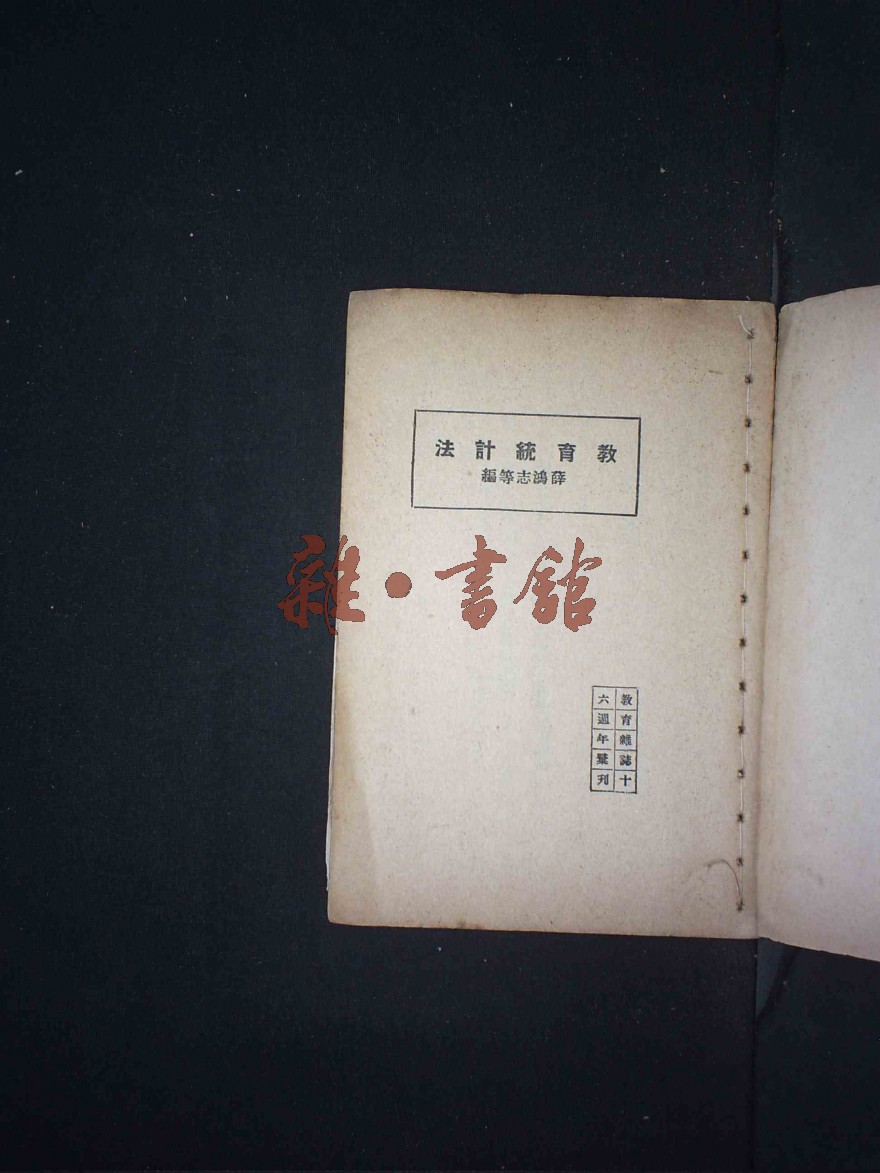 教育統計法
薛鴻志等編
雜·書館
教育雜誌十
六週年彙刊